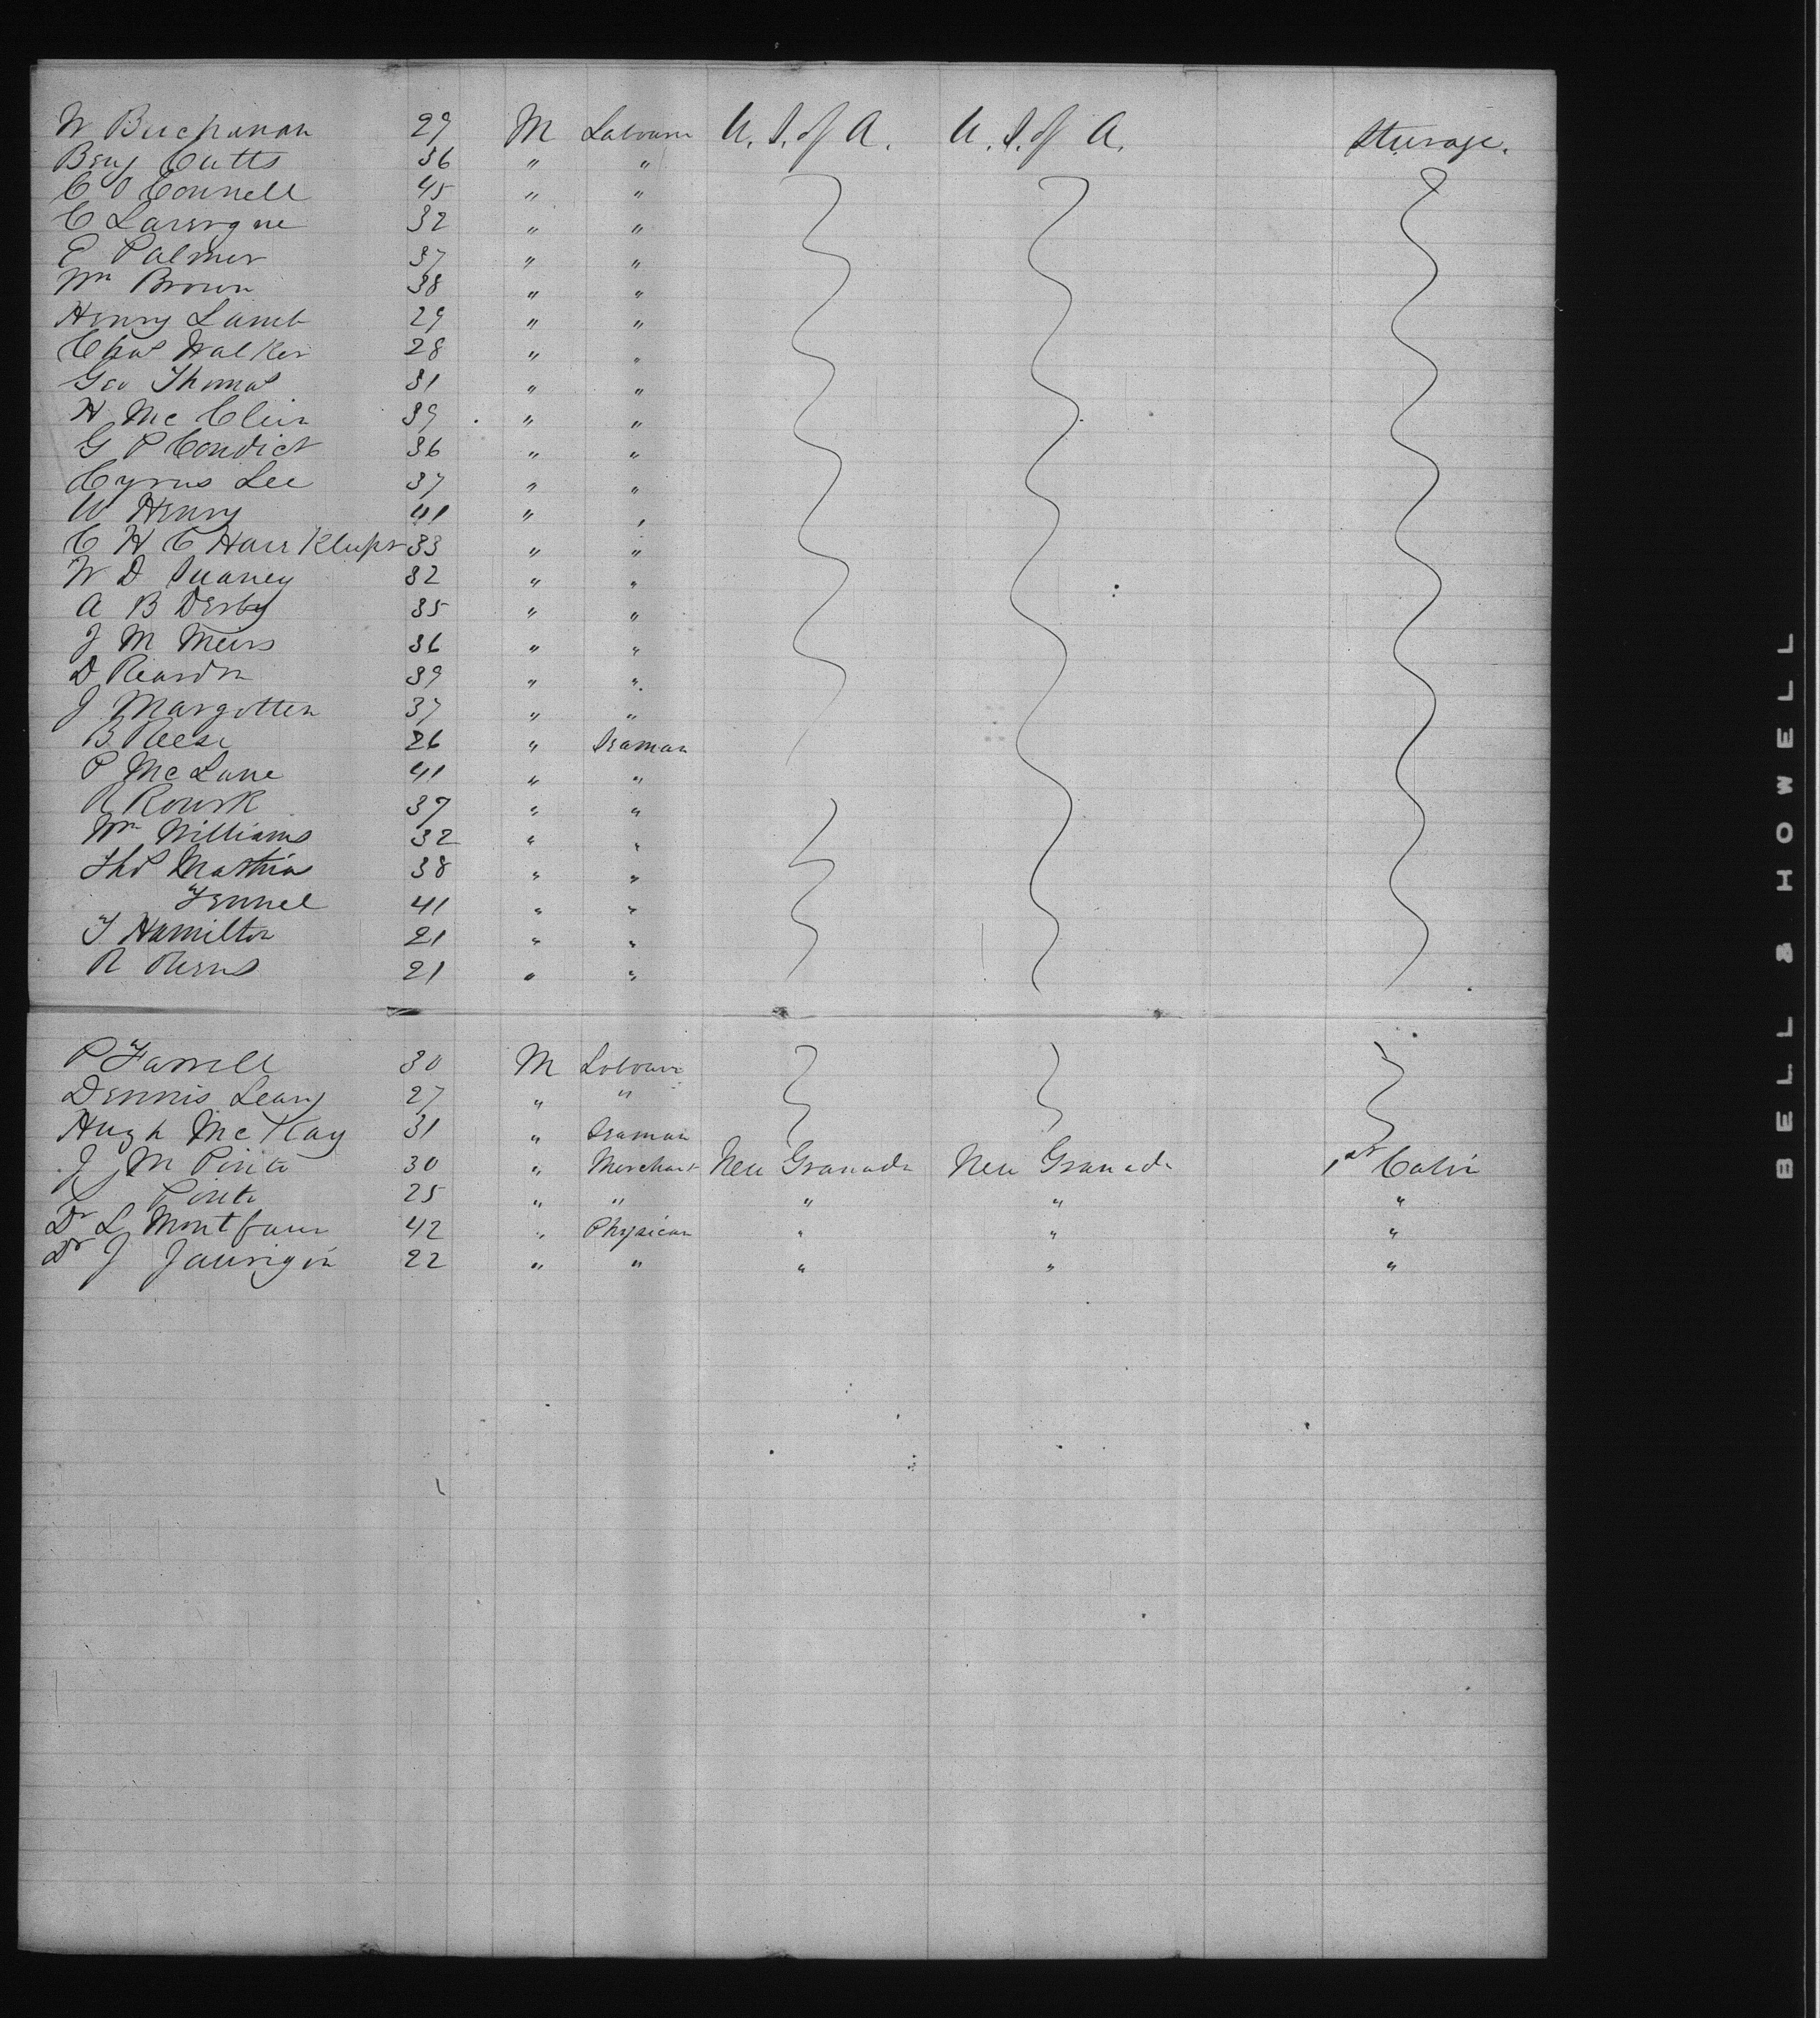 W Buchanan 29 M Labourer U. S. of A. U. S. of A. Steerage.
Benj Cutts 36 " "
C O Connell 45 " "
C Lavergne 32 " "
E Palmer 37 " "
Wm Brown 38 " "
Henry Lamb 29 " "
Chas Walker 28 " "
Geo Thomas 31 " "
H Mc Clein 39 " "
G P Condict 36 " "
Cyrus Lee 37 " "
W Henry 41 " "
C H C 33 " "
W D 32 " "
A B Derby 35 " "
J M Meirs 36 " "
D Reardon 39 " "
J Margotten 37 " "
B Reese 26 " Seaman
P Mc Lane 41 " "
R Rourk 37 " "
Wm Williams 32 " "
Thos Mathias 38 " "
Fennel 41 " "
T Hamilton 21 " "
R 21 " "
P Farrell 30 M Labourer
Dennis Leary 27 " "
Hugh Mc Kay 31 " Seaman
J M Pinto 30 " Merchant New Granada New Granada 1st Cabin
Pinto 25 " " " " "
Dr L Montfaur 42 " Physican " " "
Dr J Jaurigin 22 " " " " "
BELL & HOWELL